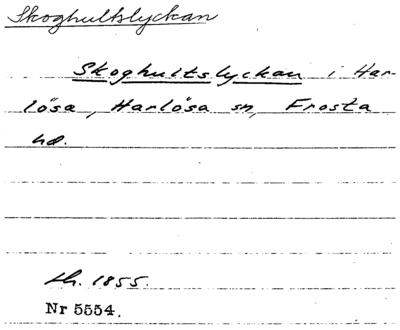 Skoghultslyckan
Skoghultslyckan i Har-
lösa, Harlösa sn, Frosta
hd.
lh. 1855.
Nr 5554.